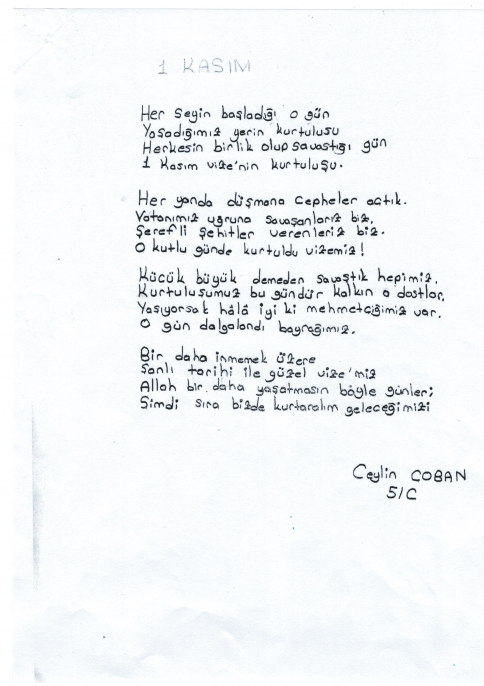 1 KASIM
Her Seyin başladığı o gün
Yasadığımız yerin kurtulusu
Herkesin birlik olup savastığı gün
1 Kasım vize'nin kurtuluşu.
Her yanda düşmana cepheler actık.
Vatanımız uğruna savaşanlarız biz.
Şerefli Şehitler verenleriz biz.
O kutlu günde kurtuldu vizemiz!
Kücük büyük demeden savaştık hepimiz.
Kurtulusumuz bu gündür kalkın o dostlar.
Yaşıyorsak hâlâ iyi ki mehmetciğimiz var.
O gün dalgalandı bayrağımız.
Bir daha inmemek üzere
Sanlı tarihi ile güzel vize'miz
Allah bir daha yaşatmasın böyle günler;
Simdi sıra bizde kurtaralım geleceğimizi
Ceylin COBAN
5/C